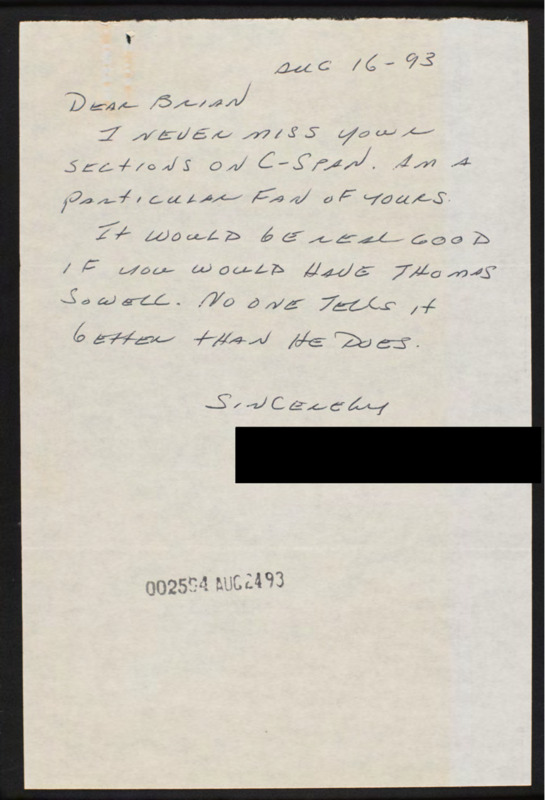 AUG 16-93
DEAR BRIAN
I NEVER MISS YOUR
SECTIONS ON C-SPAN. AM A
PARTICULAR FAN OF YOURS.
It WOULD BE REAL GOOD
IF YOU WOULD HAVE THOMAS
SOWELL. NO ONE TELLS It
BETTER THAN HE DOES.
SINCERELY
002594 AUG2493